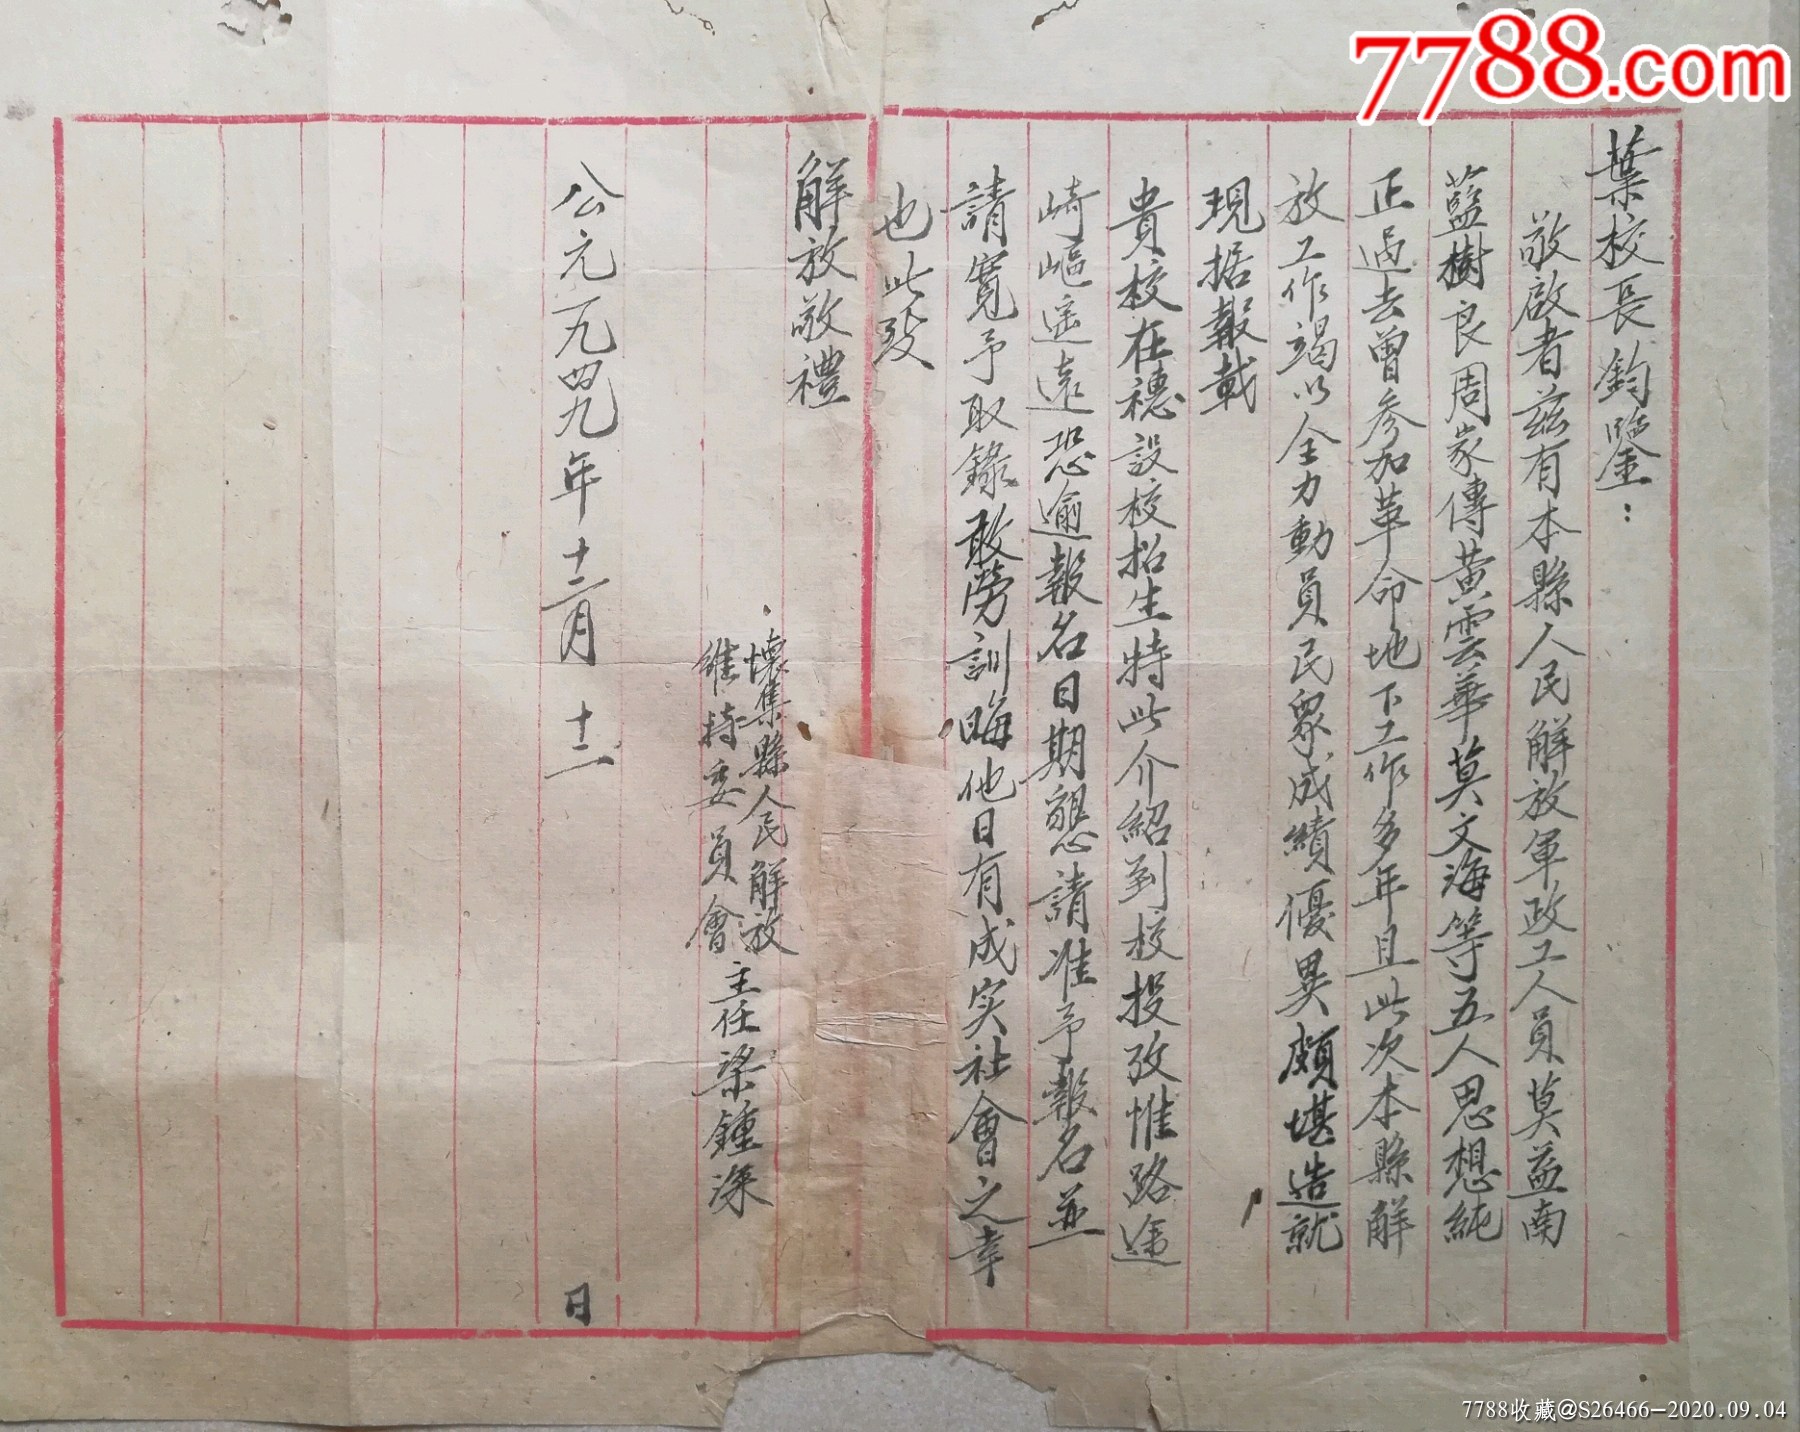 7788.com
葉校長鈞鑒：
敬啟者茲有本縣人民解放軍政工人員莫益南
藍樹良周家傳黃雲華莫文海等五人思想純
正過去曾參加革命地下工作多年且此次本縣解
放工作竭以全力動員民眾成績優異頗堪造就
現据報載
貴校在穗設校招生特此介紹到校投攷惟路途
崎嶇遥遠恐逾報名日期懇請准予報名並
請寬予取錄敢勞訓晦他日有成实社會之幸
也此致
解放敬禮
懷集縣人民解放
維持委員會
主任梁鍾深
公元一九四九年十二月十二日
7788收藏@S26466-2020.09.04